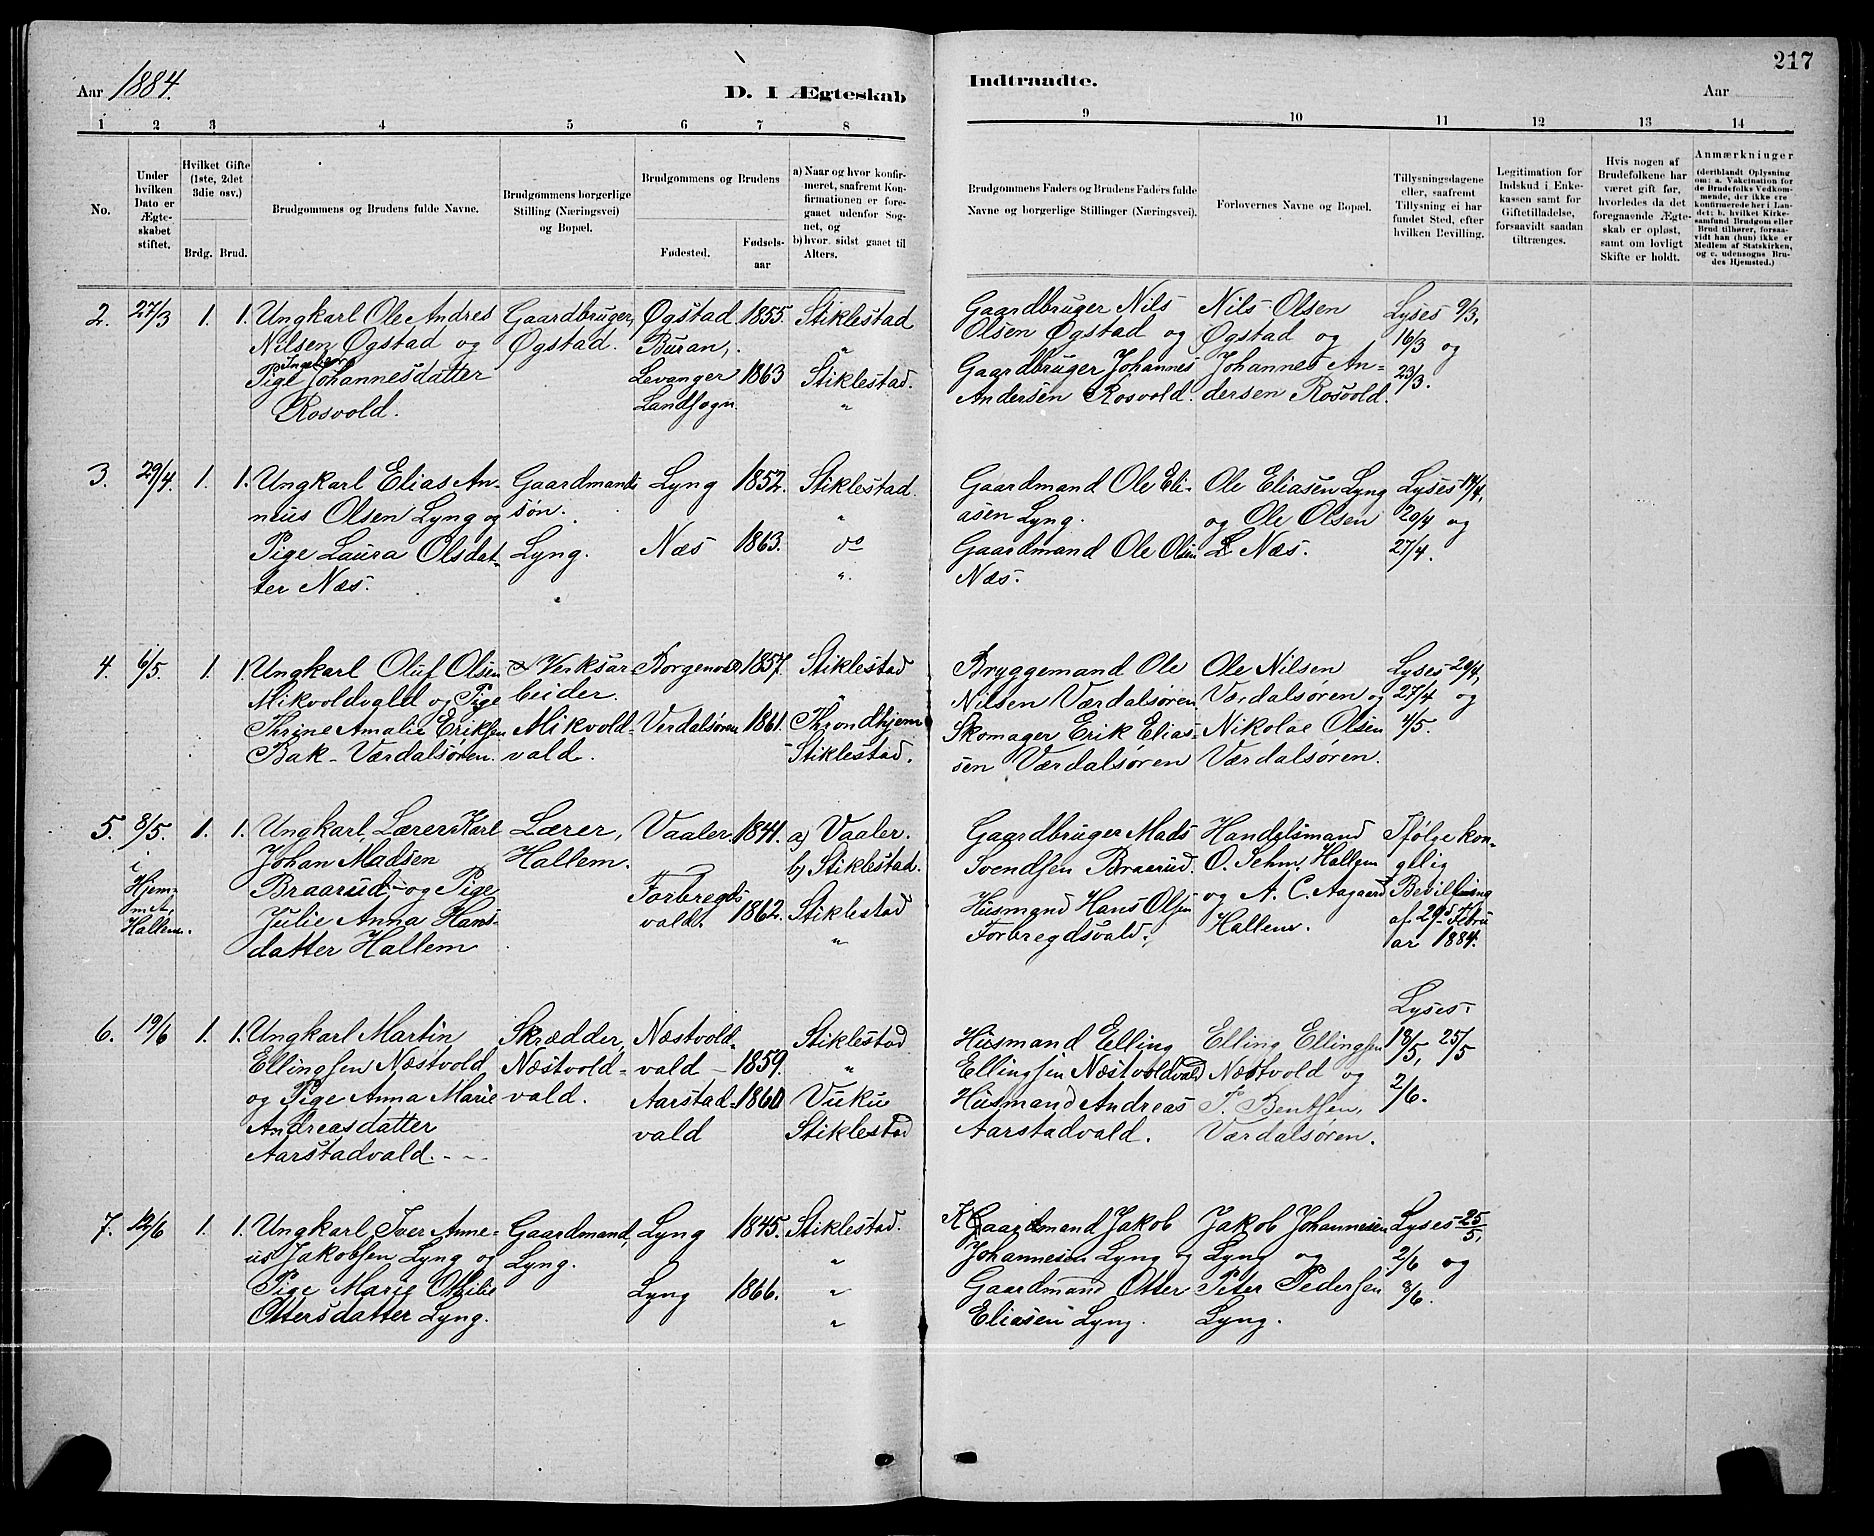 217
Aar 1884.
D. I Ægteskab Indtraadte.
Aar
1 2 3 4 5 6 7 8 9 10 11 12 13 14
No.
Under hvilken Dato er Ægteskabet stiftet.
Hvilket Gifte (1ste, 2det 3die osv.)
Brdg. Brud.
Brudgommens og Brudens fulde Navne.
Brudgommens borgerlige Stilling (Næringsvei) og Bopæl.
Brudgommens og Brudens
Fødested.
Fødsels-aar
a) Naar og hvor konfirmeret, saafremt Konfirmationen er foregaaet udenfor Sognet, og
b) hvor sidst gaaet til Alters.
Brudgommens Faders og Brudens Faders fulde Navne og borgerlige Stillinger (Næringsvei).
Forlovernes Navne og Bopæl.
Tillysningsdagene eller, saafremt Tillysning ei har fundet Sted, efter hvilken Bevilling.
Legitimation for Indskud i Enkekassen samt for Giftetilladelse, forsaavidt saadan tiltrænges.
Hvis nogen af Brudefolkene har været gift før, hvorledes da det foregaaende Ægteskab er opløst, samt om lovligt Skifte er holdt.
Anmærkninger (deriblandt Oplysning om: a. Vakcination for de Brudefolks Vedkommende, der ikke ere konfirmerede her i Landet; b. hvilket Kirkesamfund Brudgom eller Brud tilhører, forsaavidt han (hun) ikke er Medlem af Statskirken, og c. udensogns Brudes Hjemsted.)
2. 27/3 1. 1. Ungkarl Ole Andres Gaardbruger, Øgstad 1855. Stiklestad Gaardbruger Nils Nils Olsen Lyses 9/3,
Nilsen Øgstad og Øgstad. Buran, " Olsen Øgstad og Øgstad og 16/3 og
Pige Ingeborg Johannesdatter Levanger 1863 Stiklestad. Gaardbruger Johannes Johannes An- 23/3.
Rosvold. Landsogn. " Andersen Rosvold. dersen Rosvold.
3. 29/4. 1. 1. Ungkarl Elias An- Gaardmands Lyng 1852. Stiklestad. Gaardmand Ole Eli- Ole Eliasen Lyng Lyses 14/4,
neus Olsen Lyng og søn. " asen Lyng. og Ole Olsen 20/4 og
Pige Laura Olsdat- Lyng. Næs 1863. do Gaardmand Ole Olsen Næs. 27/4.
ter Næs. " ". Næs.
4. 6/5. 1. 1. Ungkarl Oluf Olsen Verksar- Borgenvald 1857. Stiklestad Bryggemand Ole Ole Nilsen Lyses 20/4,
Mikvoldvald og Pige beider. " Nilsen Værdalsøren. Værdalsøren og 27/4 og
Thrine Amalie Eriksen Mikvold- Verdalsøren 1861. Throndhjem Skomager Erik Elias- Nikolae Olsen 4/5.
Bak- Værdalsøren. vald. Stiklestad. sen Værdalsøren Værdalsøren.
5. 8/5. 1. 1. Ungkarl Lærer Karl Lærer, Vaaler 1841. a) Vaaler. Gaardbruger Mads Handelsmand Ifølge kon-
i Johan Madsen Hallem. b) Stiklestad. Svendsen Braarud. O. Sehm, Hallem gelig
Hjem- Braarud og Pige Forbregds Husmand Hans Olsen og A. C. Aagaard Bevilling
met, Julie Anna Hans- vald. 1862. Stiklestad Forbregdsvald. Hallem. af 29. Febru
Hallem. datter Hallem " ar 1884.
Lyses
6. 19/6 1. 1. Ungkarl Martin Skrædder, Næstvold- Stiklestad Husmand Elling Elling Ellingsen 18/5, 25/5
Ellingsen Næstvold Næstvold- vald 1859. " Ellingsen Næstvoldvald Næstvold og
og Pige Anna Marie vald. Aarstad- 1860 Vuku Husmand Andreas P. Bentsen, 2/6.
Andreasdatter vald Stiklestad Aarstadvald. Værdalsøren.
Aarstadvald.
7. 12/6 1. 1. Ungkarl Iver Anne- Gaardmand, Lyng 1845. Stiklestad. Gaardmand Jakob Jakob Johannesen Lyses 25/5,
us Jakobsen Lyng og Lyng. " Johannesen Lyng og Lyng og 2/6 og
Pige Marie Othilie Lyng 1866. " Gaardmand Otter Peter Pedersen 8/6.
Ottersdatter Lyng. " Eliasen Lyng. Lyng.